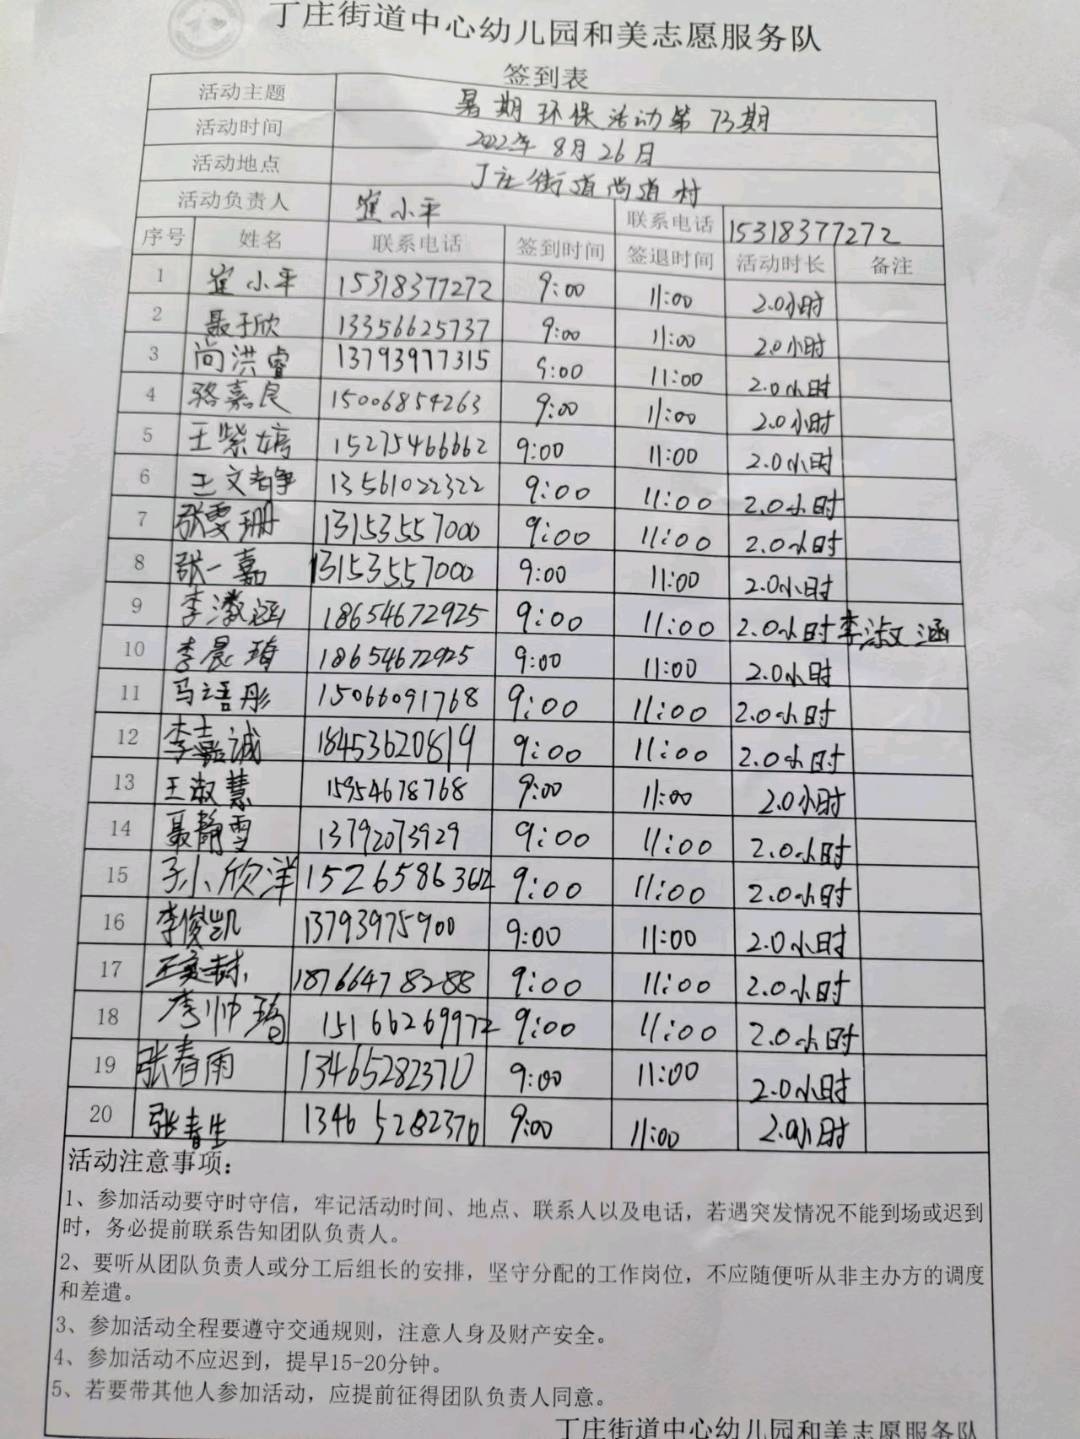 丁庄街道中心幼儿园和美志愿服务队
签到表
活动主题 暑期环保活动第73期
活动时间 2022年8月26日
活动地点 丁庄街道尚道村
活动负责人 崔小平 联系电话 15318377272
序号 姓名 联系电话 签到时间 签退时间 活动时长 备注
1 崔小平 15318377272 9:00 11:00 2.0小时
2 聂于欣 13356625737 9:00 11:00 2.0小时
3 尚洪睿 13793977315 9:00 11:00 2.0小时
4 骆嘉良 15006854263 9:00 11:00 2.0小时
5 王紫婷 15275466662 9:00 11:00 2.0小时
6 王文静 13561022322 9:00 11:00 2.0小时
7 张雯珊 13153557000 9:00 11:00 2.0小时
8 张一嘉 13153557000 9:00 11:00 2.0小时
9 李淑涵 18654672925 9:00 11:00 2.0小时 李淑涵
10 李晨琦 18654672925 9:00 11:00 2.0小时
11 马语彤 15066091768 9:00 11:00 2.0小时
12 李嘉诚 18453620819 9:00 11:00 2.0小时
13 王淑慧 15954678768 9:00 11:00 2.0小时
14 聂静雪 13792073929 9:00 11:00 2.0小时
15 孙欣洋 15265863612 9:00 11:00 2.0小时
16 李俊凯 13793975900 9:00 11:00 2.0小时
17 18766478288 9:00 11:00 2.0小时
18 李帅琦 15166269972 9:00 11:00 2.0小时
19 张春雨 13465282370 9:00 11:00 2.0小时
20 张春生 13465282370 9:00 11:00 2.0小时
活动注意事项：
1、参加活动要守时守信，牢记活动时间、地点、联系人以及电话，若遇突发情况不能到场或迟到
时，务必提前联系告知团队负责人。
2、要听从团队负责人或分工后组长的安排，坚守分配的工作岗位，不应随便听从非主办方的调度
和差遣。
3、参加活动全程要遵守交通规则，注意人身及财产安全。
4、参加活动不应迟到，提早15-20分钟。
5、若要带其他人参加活动，应提前征得团队负责人同意。
丁庄街道中心幼儿园和美志愿服务队